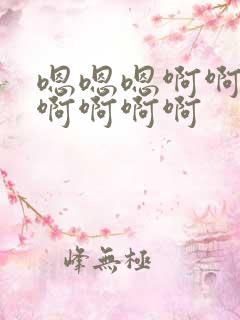 嗯嗯嗯啊啊
啊啊啊啊
峰無極